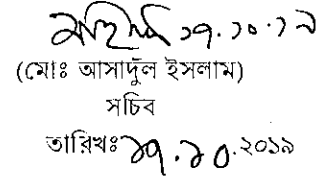 ১৭.১০.১৯
(মোঃ আসাদুল ইসলাম)
সচিব
তারিখঃ ১৭.১০.২০১৯